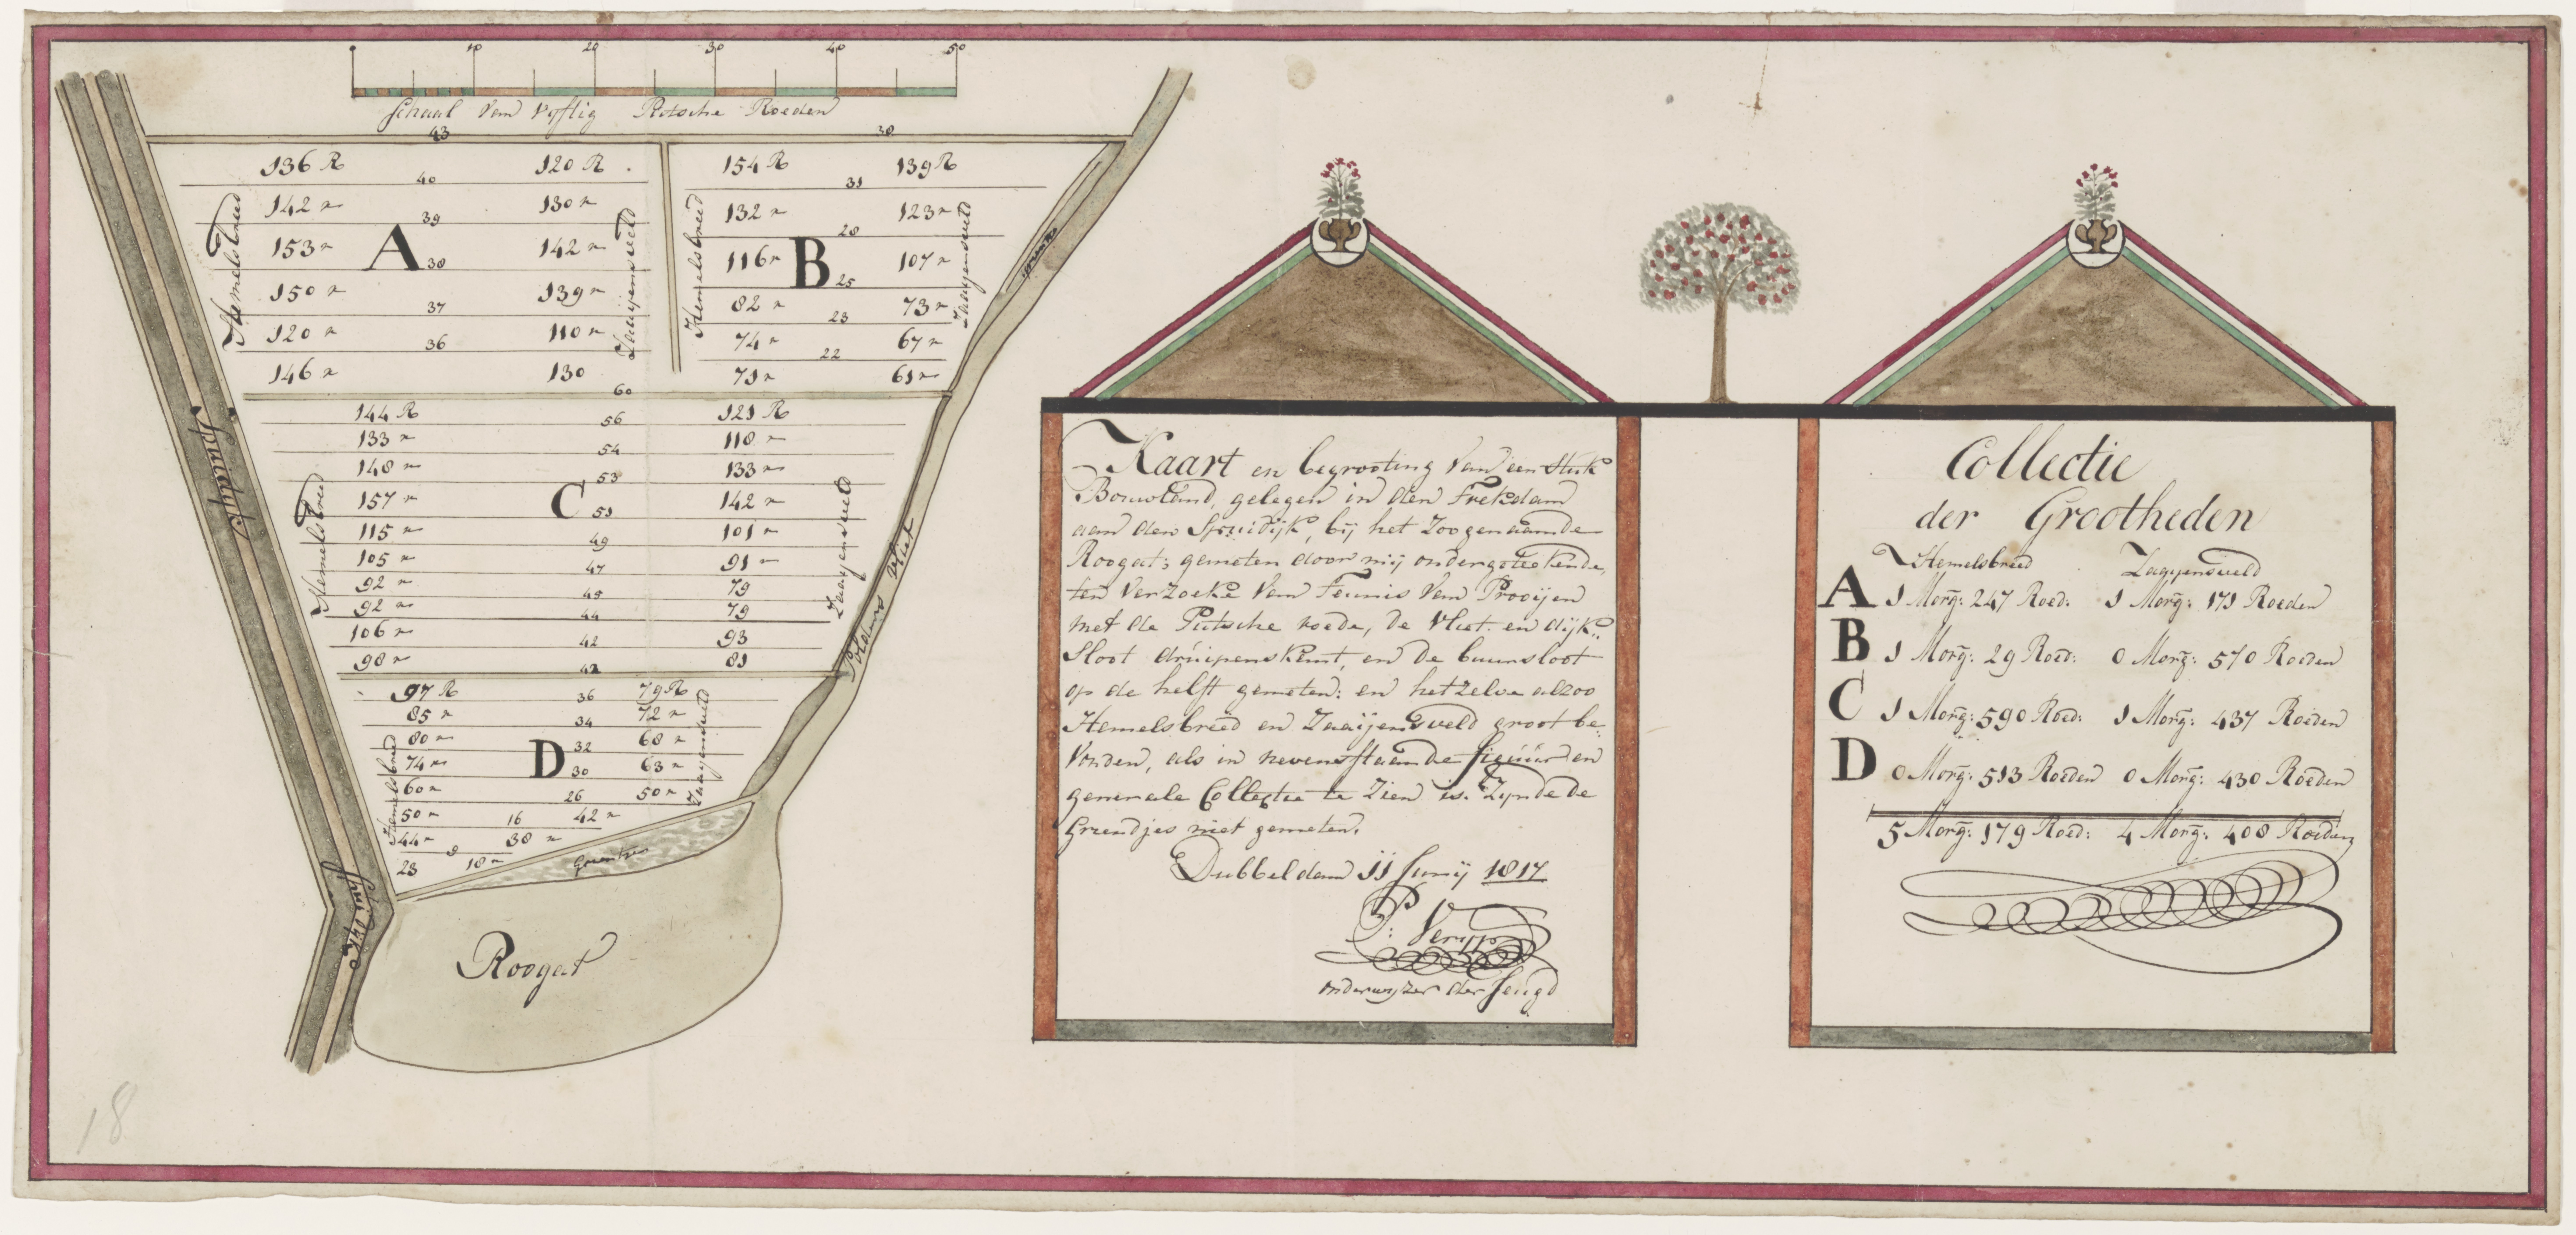 10 20 30 40 50
Schaal van Vyftig Putsche Roeden
43
136 R 120 R.
40
142 " 130 "
39
153 " 142 "
A 38
150 " 139 "
37
120 " 110 "
36
146 " 130
Hemelsbreed
Zaayensveld
30
154 R 139 R
31
132 " 123 "
28
116 " 107 "
B 25
82 " 73 "
23
74 " 67 "
22
71 " 61 "
Hemelsbreed
Zaayensveld
60
144 R 121 R
56
133 " 110 "
54
148 " 133 "
53
157 " 142 "
C 51
115 " 101 "
49
105 " 91 "
47
92 " 79
45
92 " 79
44
106 " 93
42
98 " 81
42
Hemelsbreed
Zaayensveld
97 R 79 R
36
85 " 72 "
34
80 " 68 "
D 32
74 " 63 "
30
60 " 50 "
26
50 " 42 "
16
44 " 38 "
8
23 18 "
Hemelsbreed
Zaayensveld
Spuidyk
Spuidyk
Polders Vliet
Roogat
18
Kaart en begrooting van een Stuk
Bouwland, gelegen in den
aan den Spuidijk, bij het Zoogenaamde
Roogat; gemeten door mij ondergeteekende,
ten Verzoeke van Teunis van Prooijen
met de Putsche roede, de Vliet en dijk-
Sloot druipenskant, en de buursloot
op de helft gemeten: en hetzelve alzoo
Hemelsbreed en Zaaijensveld groot be-
vonden, als in nevenstaande figuur en
generale Collectie te Zien is. Zynde de
Griendjes niet gemeten.
Dubbeldam 11 Junij 1817
P: Verypp
onderwyzer der Jeugd
Collectie
der Grootheden
Hemelsbreed Zaayensveld
A 1 Morg: 247 Roed: 1 Morg: 171 Roeden
B 1 Morg: 29 Roed: 0 Morg: 570 Roeden
C 1 Morg: 590 Roed: 1 Morg: 437 Roeden
D 0 Morg: 513 Roeden 0 Morg: 430 Roeden
5 Morg: 179 Roed: 4 Morg: 408 Roeden